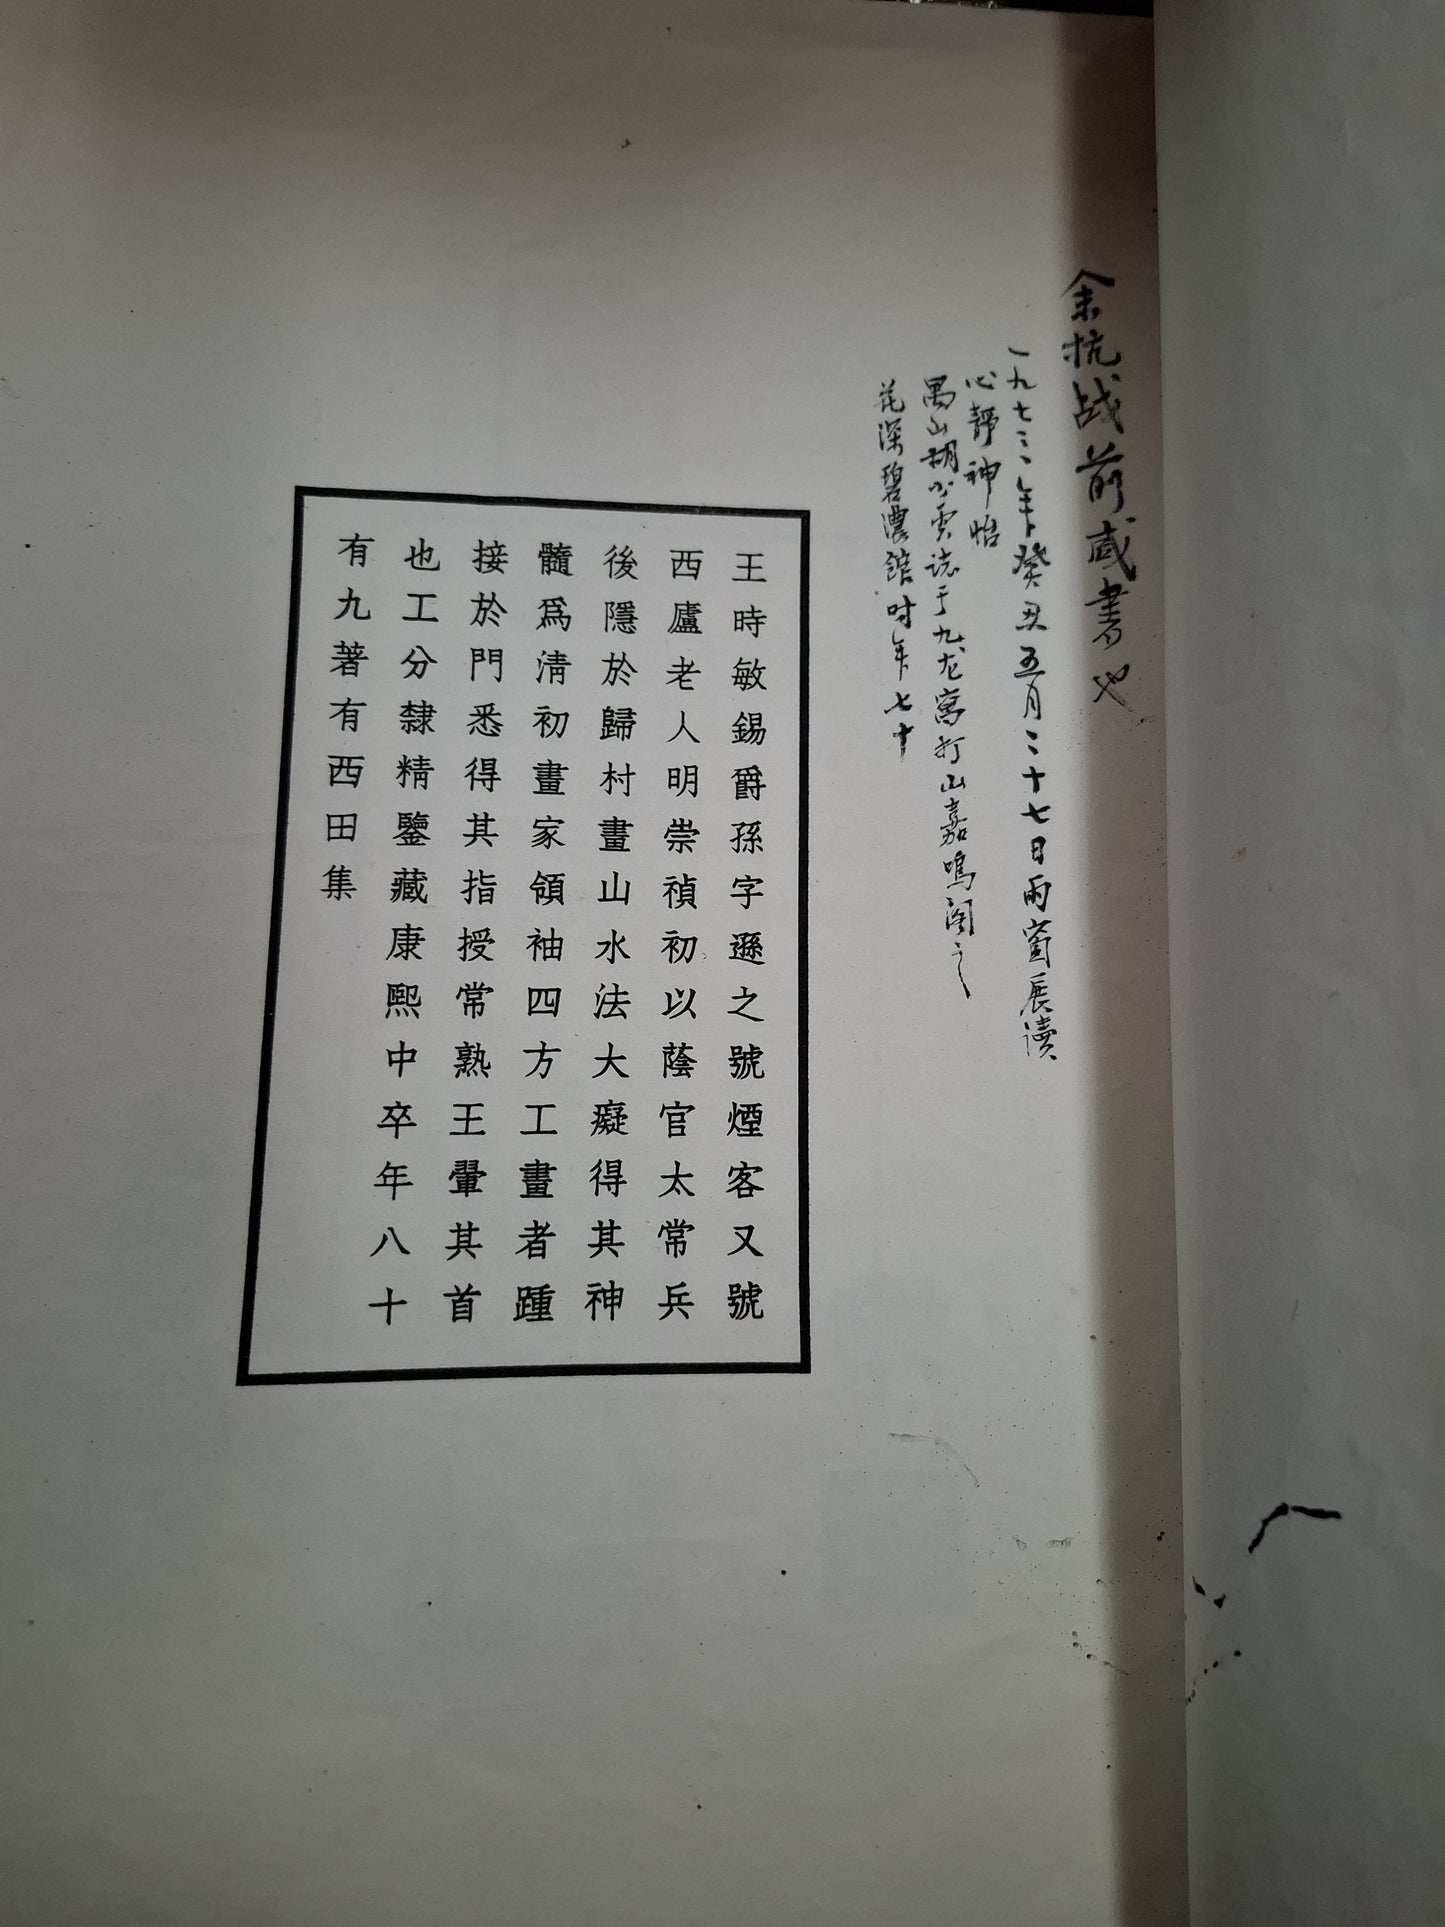 余抗战前咸書也
一九七三年癸丑五月二十七日雨窗展读
心靜神怡
禺山胡少雲誌于九龙窩打山嘉鳴阁之
花深碧濃館时年七十
王時敏錫爵孫字遜之號煙客又號
西廬老人明崇禎初以蔭官太常兵
後隱於歸村畫山水法大癡得其神
髓爲淸初畫家領袖四方工畫者踵
接於門悉得其指授常熟王翬其首
也工分隸精鑒藏康熙中卒年八十
有九著有西田集